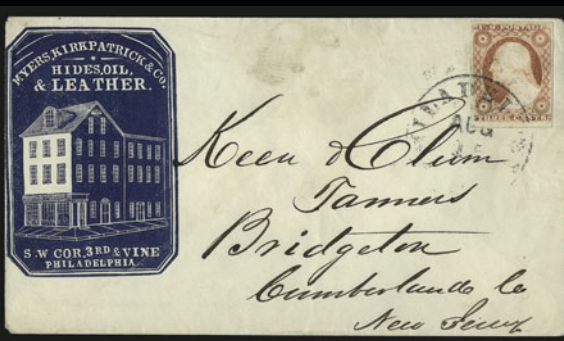 MYERS, KIRKPATRICK & CO.
HIDES, OIL,
& LEATHER.
S.W COR. 3RD & VINE
PHILADELPHIA
U.S. POSTAGE
THREE CENTS
AUG
Keen & Clum
Tanners
Bridgeton
Cumberlande Co
New Jersey